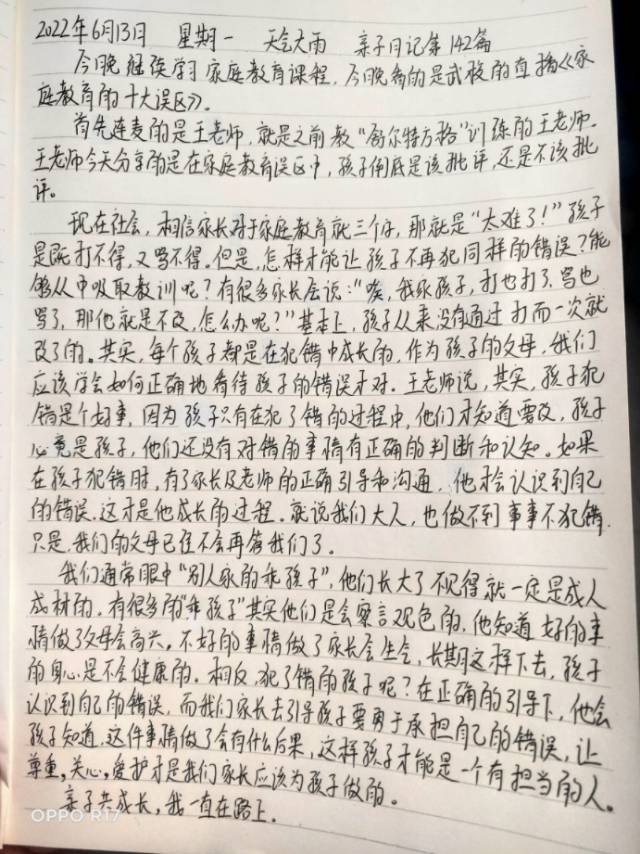 2022年6月13日 星期一 天气大雨 亲子日记第142篇
今晚继续学习家庭教育课程,今晚看的是武校的直播《家
庭教育的十大误区》。
首先连麦的是王老师,就是之前教“舒尔特方格”训练的王老师。
王老师今天分享的是在家庭教育误区中,孩子倒底是该批评,还是不该批
评。
现在社会,相信家长对于家庭教育就三个字,那就是“太难了!”孩子
是既打不得,又骂不得。但是,怎样才能让孩子不再犯同样的错误?能
够从中吸取教训呢?有很多家长会说:“唉,我家孩子,打也打了,骂也
骂了,那他就是不改,怎么办呢?”基本上,孩子从来没有通过打而一次就
改了的。其实,每个孩子都是在犯错中成长的,作为孩子的父母,我们
应该学会如何正确地看待孩子的错误才对。王老师说,其实,孩子犯
错是个好事,因为孩子只有在犯了错的过程中,他们才知道要改,孩子
必竟是孩子,他们还没有对错的事情有正确的判断和认知。如果
在孩子犯错时,有了家长及老师的正确引导和沟通,他才会认识到自己
的错误,这才是他成长的过程。就说我们大人,也做不到事事不犯错,
只是,我们的父母已经不会再管我们了。
我们通常眼中“别人家的乖孩子”,他们长大了不见得就一定是成人
成材的。有很多的“乖孩子”其实他们是会察言观色的,他知道好的事
情做了父母会高兴。不好的事情做了家长会生气,长期这样下去,孩子
的身心是不会健康的。相反,犯了错的孩子呢?在正确的引导下,他会
认识到自己的错误,而我们家长去引导孩子要勇于承担自己的错误,让
孩子知道,这件事情做了会有什么后果,这样孩子才能是一个有担当的人。
尊重,关心,爱护才是我们家长应该为孩子做的。
亲子共成长,我一直在路上。
OPPO R17